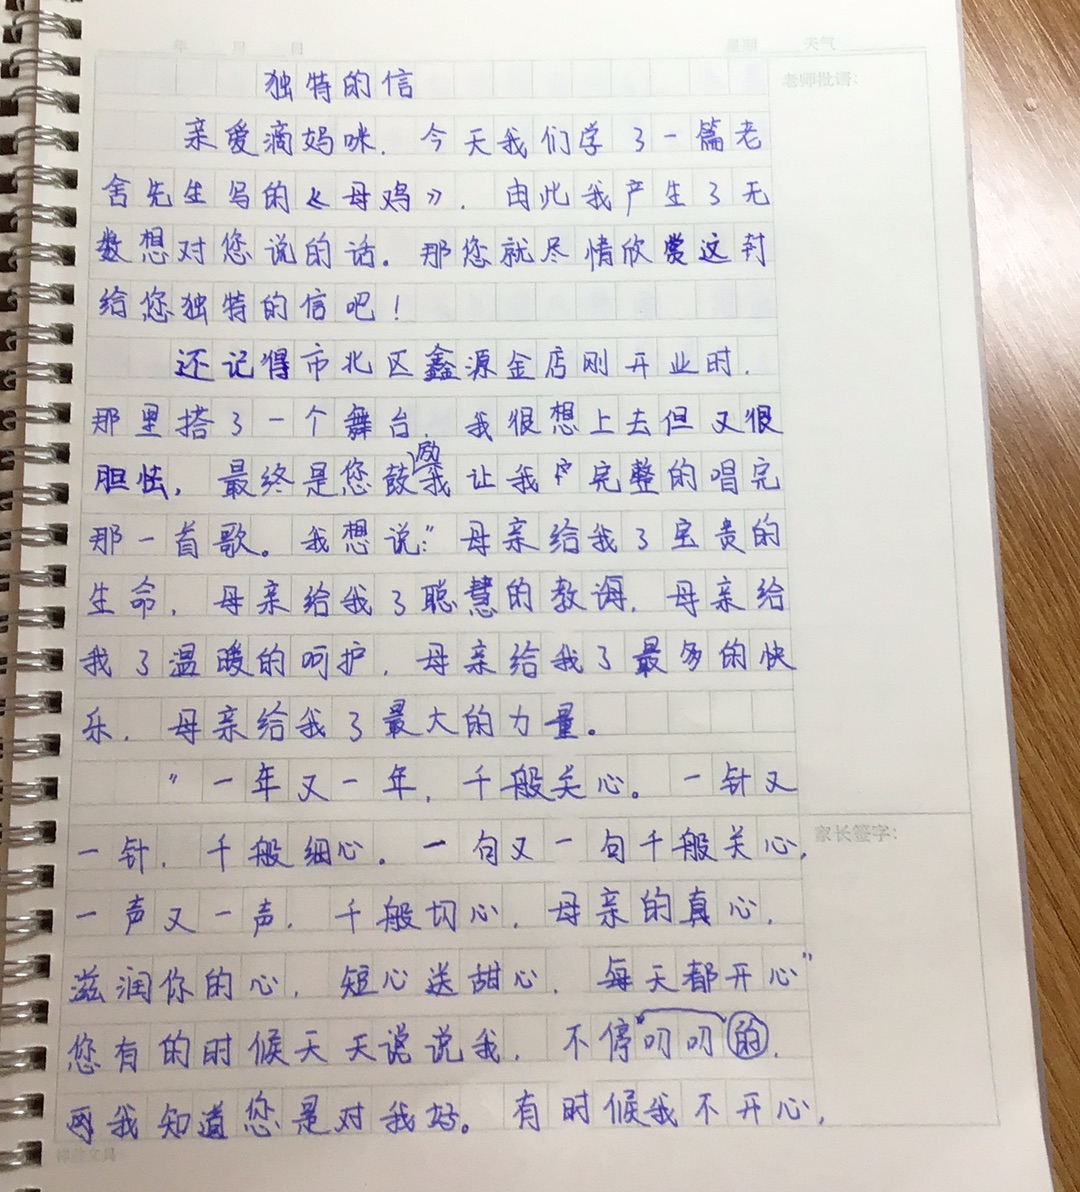 年 月 日 星期 天气
独特的信
老师批语:
亲爱滴妈咪，今天我们学了一篇老
舍先生写的《母鸡》，由此我产生了无
数想对您说的话。那您就尽情欣赏这封
给您独特的信吧！
还记得市北区鑫源金店刚开业时，
那里搭了一个舞台，我很想上去但又很
胆怯，最终是您鼓励我让我完整的唱完
那一首歌。我想说:"母亲给我了宝贵的
生命，母亲给我了聪慧的教诲，母亲给
我了温暖的呵护，母亲给我了最多的快
乐，母亲给我了最大的力量。
"一年又一年，千般关心。一针又
一针，千般细心。一句又一句千般关心，
家长签字:
一声又一声，千般切心，母亲的真心，
滋润你的心，短心送甜心，每天都开心"
您有的时候天天说说我，不停的叨叨，
我知道您是对我好。有时候我不开心，